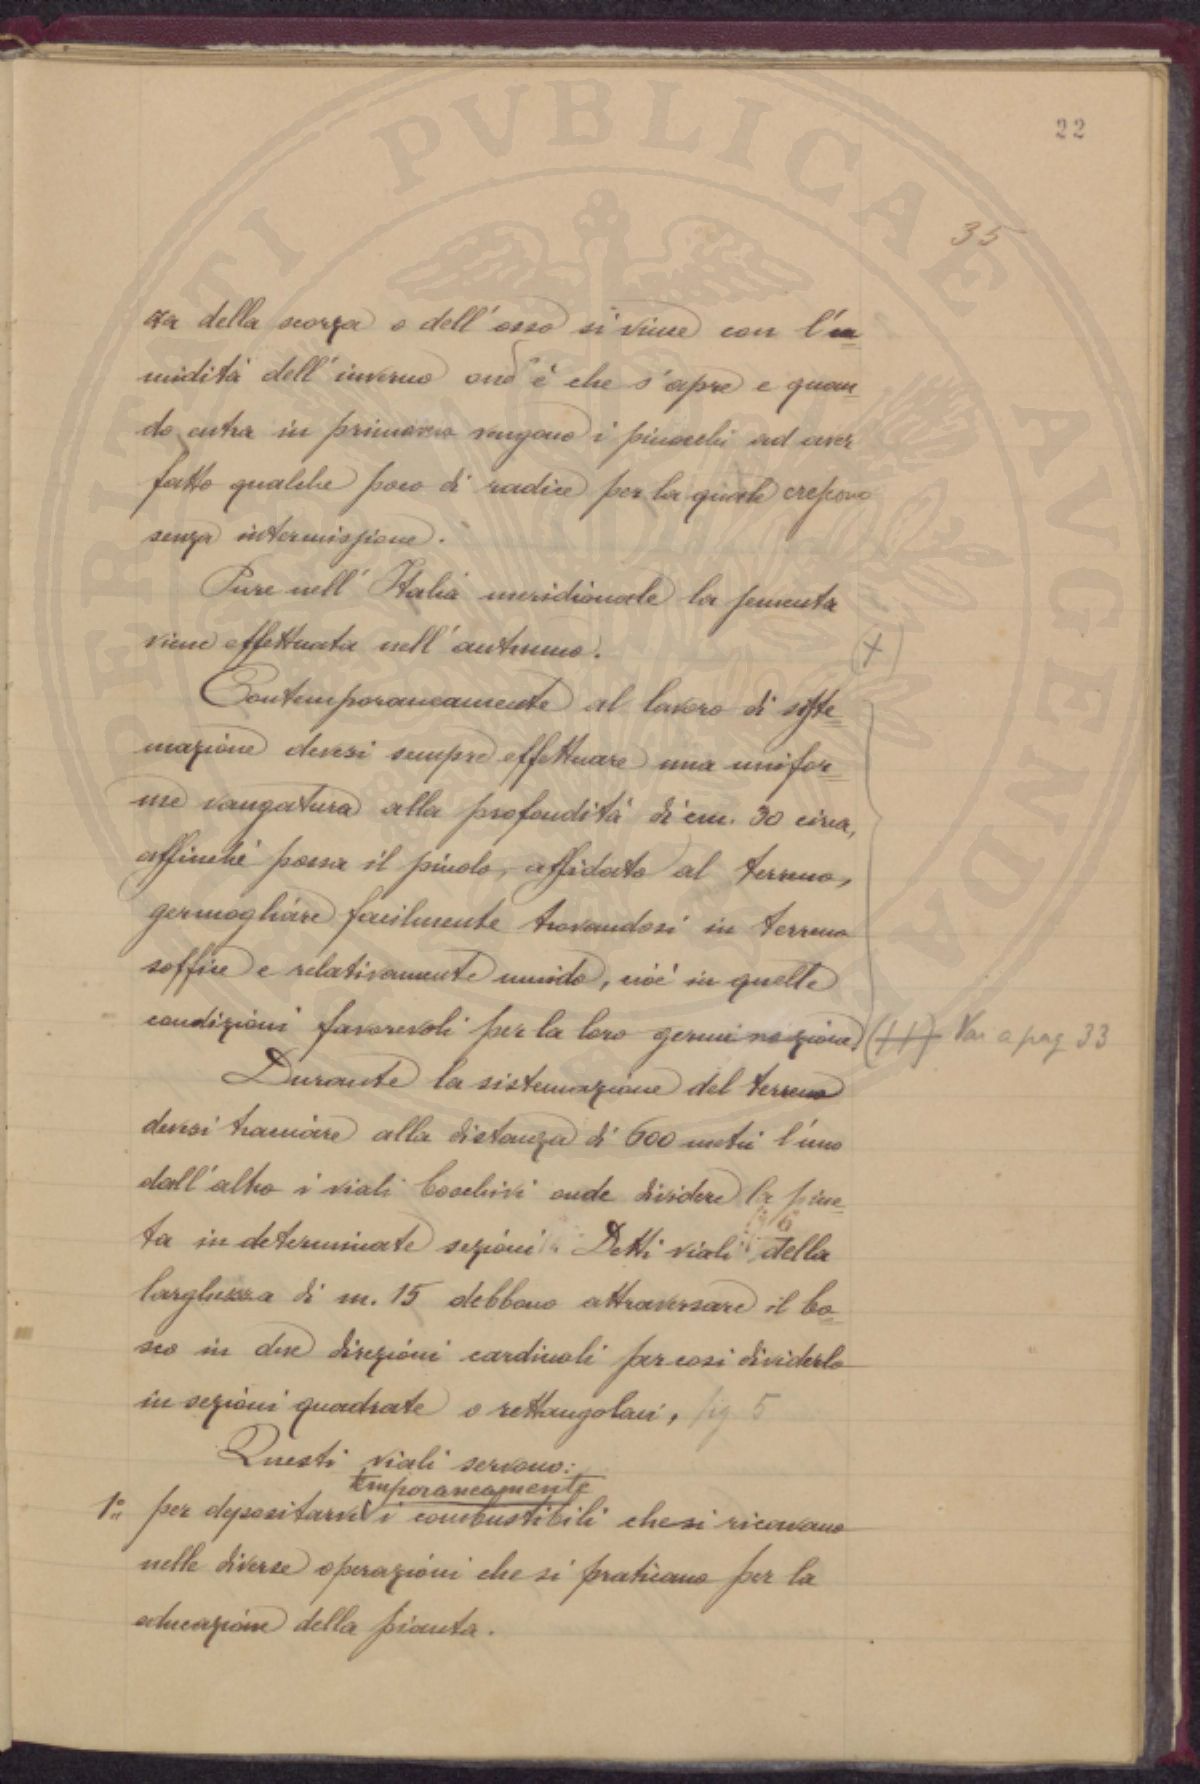 22
35
za della scorza o dell'osso si vince con l'u
midità dell'inverno ond'è che s'apre e quan
do entra in primavera vengono i pinocchi ad aver
fatto qualche poco di radice per la quale crepono
senza intermissione.
Pure nell'Italia meridionale la sementa
viene effettuata nell'autunno.
(+)
Contemporaneamente al lavoro di siste
mazione devesi sempre effettuare una unifor
me vangatura alla profondità di cm. 30 circa,
affinché possa il pinolo, affidato al terreno,
germogliare facilmente trovandosi in terreno
soffice e relativamente umido, cioè in quelle
condizioni favorevoli per la loro germinazione. (++) Va a pag 33
Durante la sistemazione del terreno
devesi tracciare alla distanza di 600 metri l'uno
dall'altro i viali boschivi onde dividere la pine
ta in determinate sezioni. Detti viali della
larghezza di m. 15 debbono attraversare il bo
sco in due direzioni cardinali per cosi dividerlo
in sezioni quadrate o rettangolari, fig 5
Questi viali servono:
temporaneamente
1º per depositarvi i combustibili che si ricavano
nelle diverse operazioni che si praticano per la
educazione della pianta.
PERITATI PUBLICAE AUGENDAE